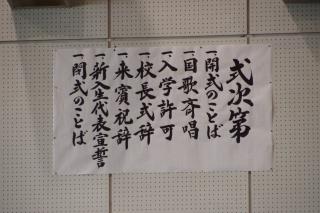 式次第
一、開式のことば
一、国歌斉唱
一、入学許可
一、校長式辞
一、来賓祝辞
一、新入生代表宣誓
一、閉式のことば